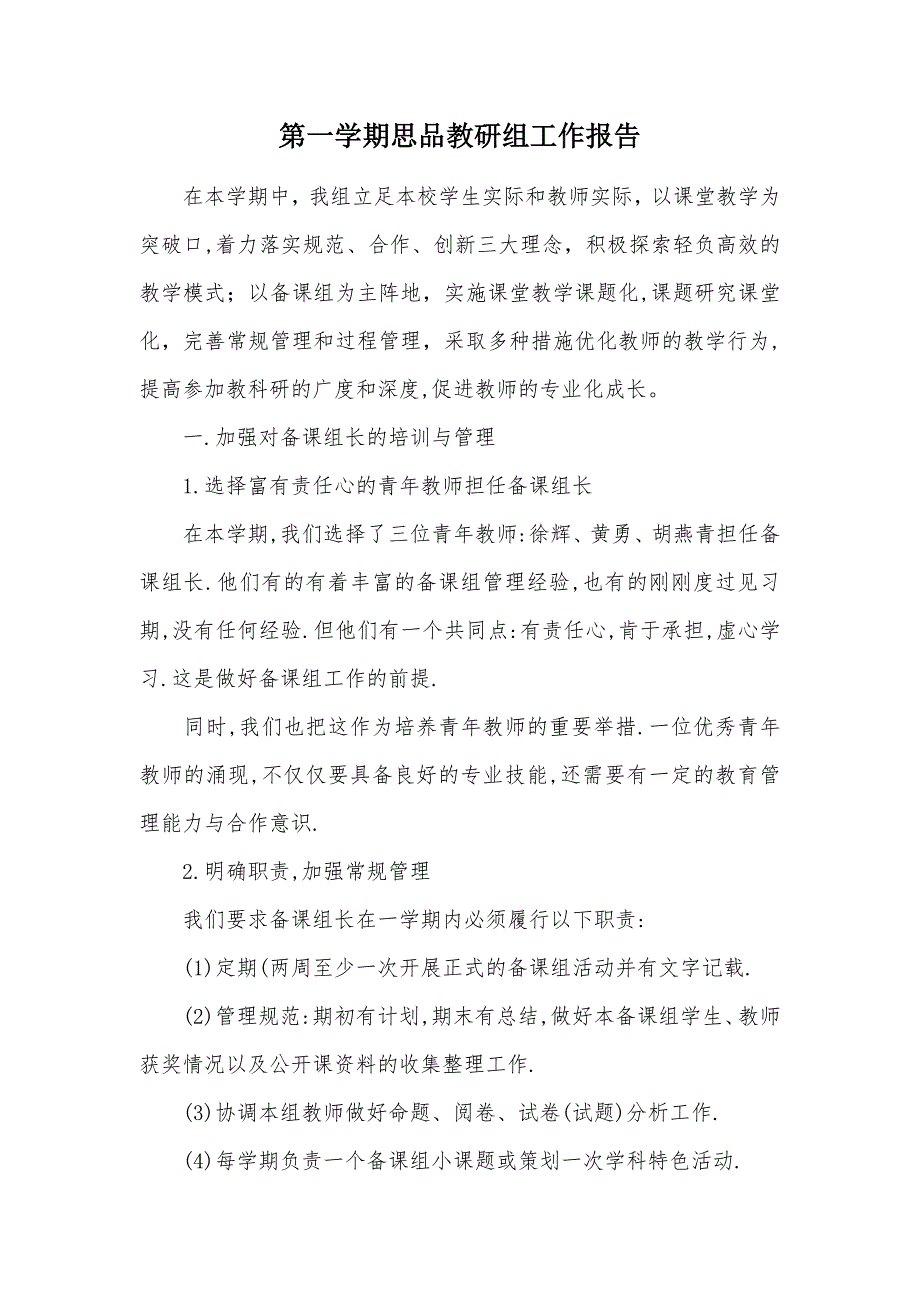 第一学期思品教研组工作报告
在本学期中，我组立足本校学生实际和教师实际，以课堂教学为
突破口,着力落实规范、合作、创新三大理念，积极探索轻负高效的
教学模式；以备课组为主阵地，实施课堂教学课题化,课题研究课堂
化，完善常规管理和过程管理，采取多种措施优化教师的教学行为,
提高参加教科研的广度和深度,促进教师的专业化成长。
一.加强对备课组长的培训与管理
1.选择富有责任心的青年教师担任备课组长
在本学期,我们选择了三位青年教师:徐辉、黄勇、胡燕青担任备
课组长.他们有的有着丰富的备课组管理经验,也有的刚刚度过见习
期,没有任何经验.但他们有一个共同点:有责任心,肯于承担,虚心学
习.这是做好备课组工作的前提.
同时,我们也把这作为培养青年教师的重要举措.一位优秀青年
教师的涌现,不仅仅要具备良好的专业技能,还需要有一定的教育管
理能力与合作意识.
2.明确职责,加强常规管理
我们要求备课组长在一学期内必须履行以下职责:
(1)定期(两周至少一次开展正式的备课组活动并有文字记载.
(2)管理规范:期初有计划,期末有总结,做好本备课组学生、教师
获奖情况以及公开课资料的收集整理工作.
(3)协调本组教师做好命题、阅卷、试卷(试题)分析工作.
(4)每学期负责一个备课组小课题或策划一次学科特色活动.